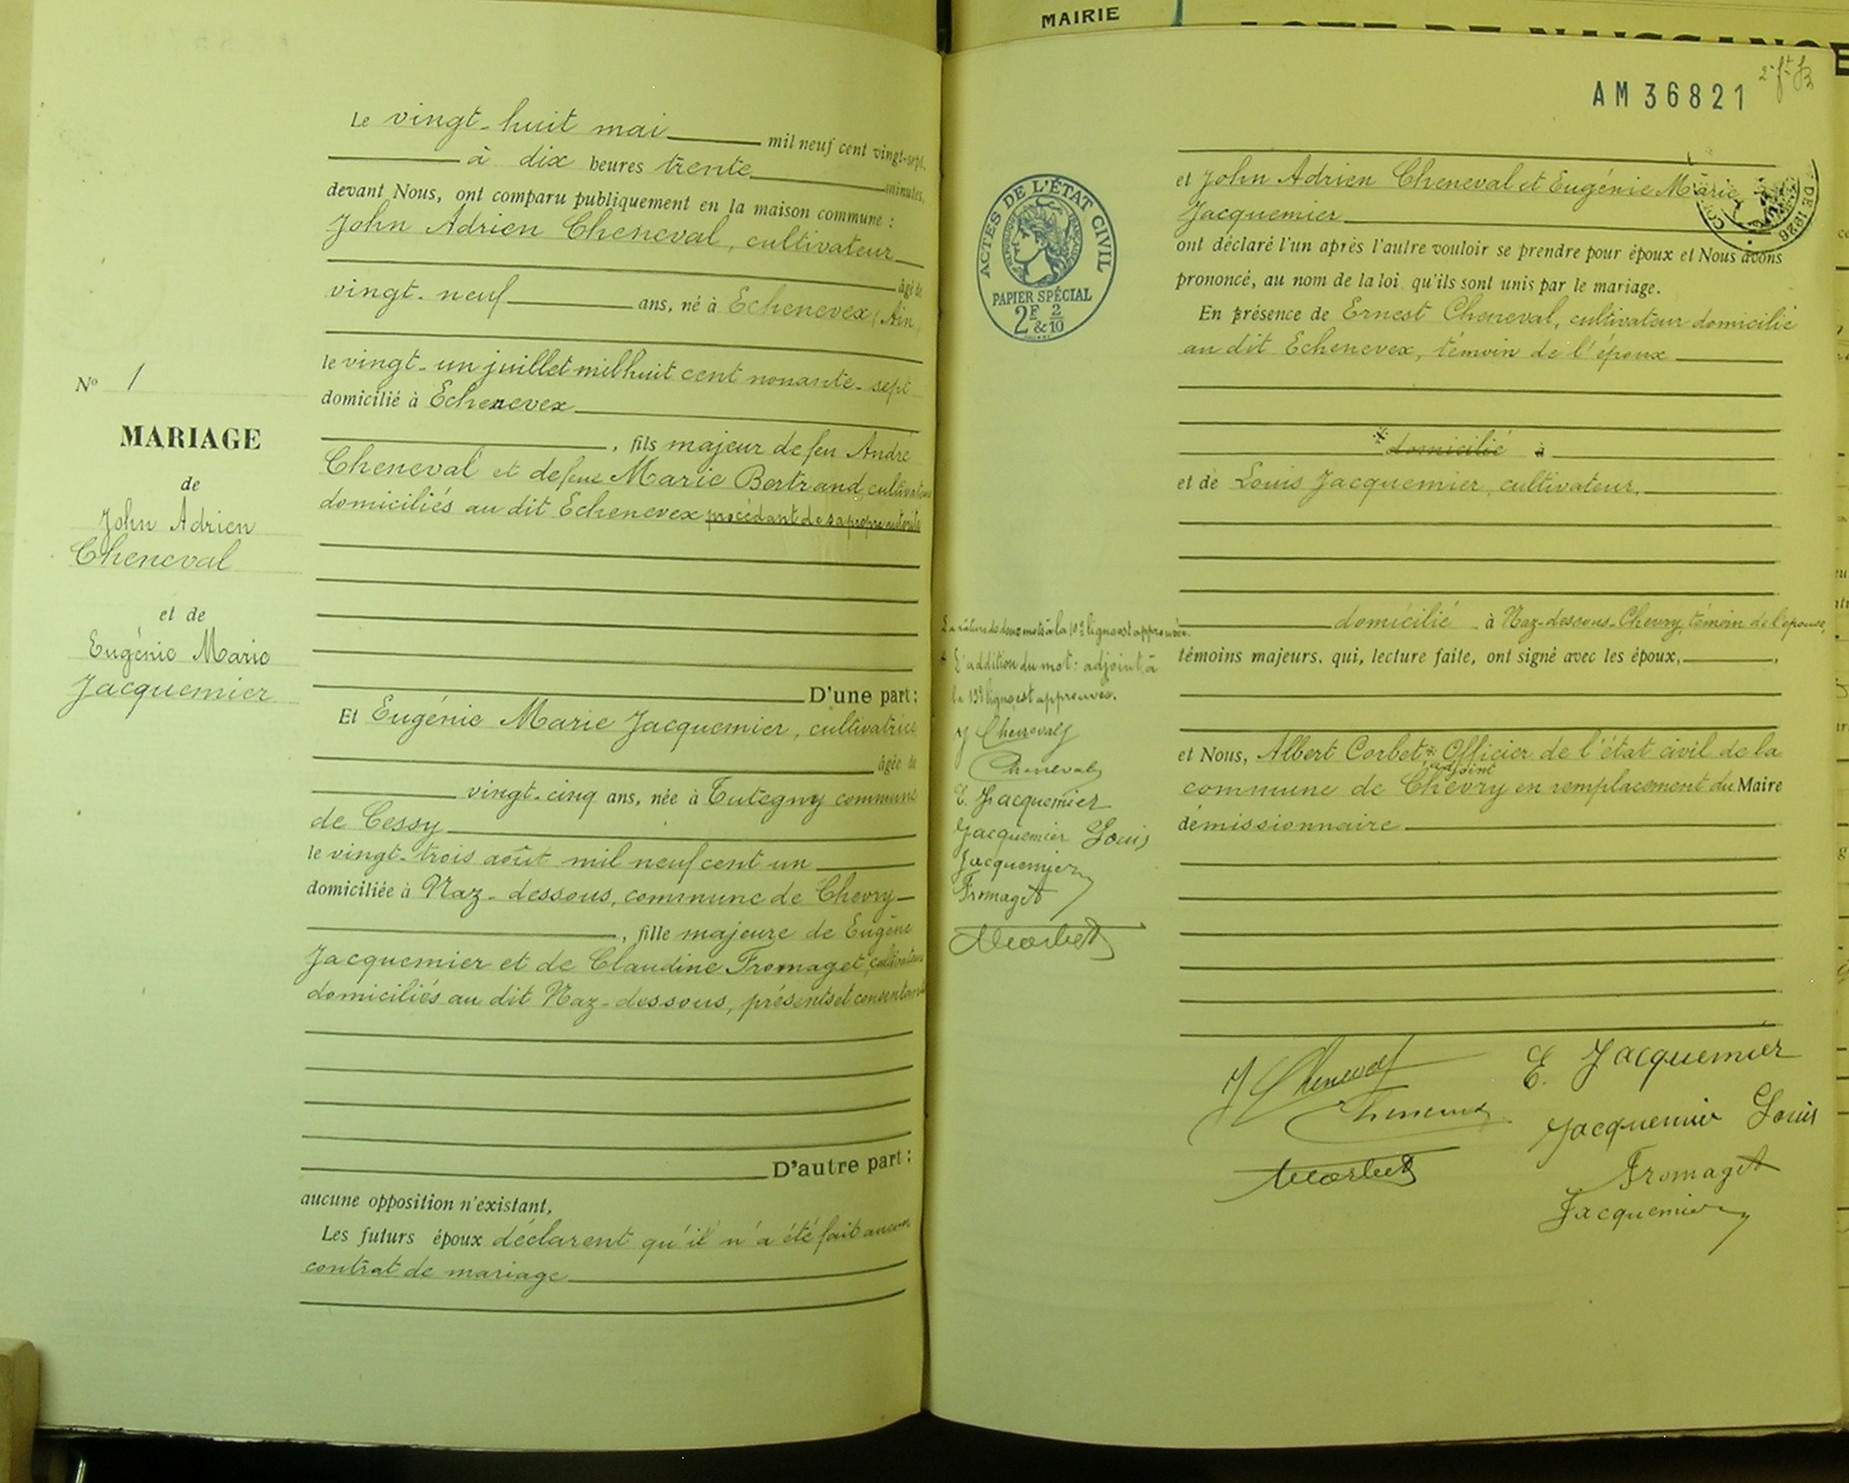 MAIRIE
Le vingt-huit mai mil neuf cent vingt-sept,
à dix heures trente minutes,
devant Nous, ont comparu publiquement en la maison commune :
John Adrien Cheneval, cultivateur
âgé de
vingt-neuf ans, né à Echenevex (Ain)
le vingt-un juillet mil huit cent nonante-sept
domicilié à Echenevex
, fils majeur de feu André
Cheneval et de feue Marie Bertrand, cultivateurs
domiciliés au dit Echenevex procédant de sa propre autorité
D'une part :
Et Eugénie Marie Jacquemier, cultivatrice
âgée de
vingt-cinq ans, née à Tutegny commune
de Cessy
le vingt-trois août mil neuf cent un
domiciliée à Naz-dessous, commune de Chevry
, fille majeure de Eugène
Jacquemier et de Claudine Fromaget, cultivateurs
domiciliés au dit Naz-dessous, présents et consentants
D'autre part :
aucune opposition n'existant,
Les futurs époux déclarent qu'il n'a été fait aucun
contrat de mariage
No 1
MARIAGE
de
John Adrien
Cheneval
et de
Eugénie Marie
Jacquemier
AM 36821
ACTES DE L'ÉTAT CIVIL
PAPIER SPÉCIAL
2F & 2/10
DE 1926
et John Adrien Cheneval et Eugénie Marie
Jacquemier
ont déclaré l'un après l'autre vouloir se prendre pour époux et Nous avons
prononcé, au nom de la loi qu'ils sont unis par le mariage.
En présence de Ernest Cheneval, cultivateur domicilié
au dit Echenevex, témoin de l'époux
domicilié à
et de Louis Jacquemier, cultivateur,
domicilié à Naz-dessous-Chevry, témoin de l'épouse,
témoins majeurs, qui, lecture faite, ont signé avec les époux,
et Nous, Albert Corbet * Officier de l'état civil de la
adjoint
commune de Chevry en remplacement du Maire
démissionnaire
La rature de deux mots à la 10e ligne est approuvée.
* L'addition du mot : adjoint à
la 19e ligne est approuvée.
J Cheneval
Cheneval
E. Jacquemier
Jacquemier Louis
Jacquemier
Fromaget
ACorbet
J Cheneval
Cheneval
ACorbet
E. Jacquemier
Jacquemier Louis
Fromaget
Jacquemier